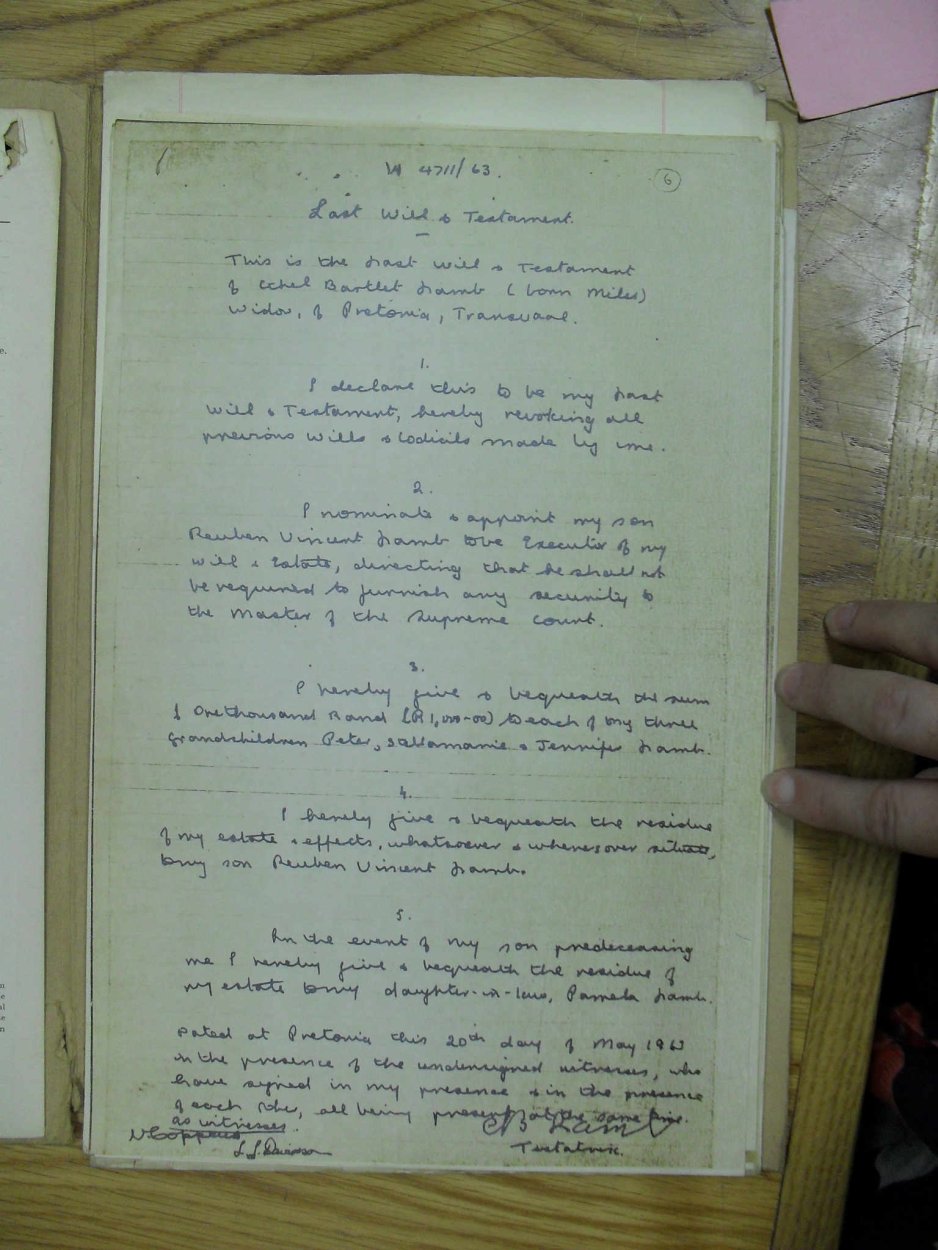 W 4711/63.
6
Last Will & Testament.
This is the Last Will & Testament
of Ethel Bartlet Lamb (born Miles)
Widow, of Pretoria, Transvaal.
1.
I declare this to be my Last
Will & Testament, hereby revoking all
previous Wills & Codicils made by me.
2.
I nominate & appoint my son
Reuben Vincent Lamb to be Executor of my
will & Estate, directing that he shall not
be required to furnish any security to
the Master of the Supreme Court.
3.
I hereby give & bequeath the sum
of One thousand Rand (R1,000-00) to each of my three
Grandchildren Peter, Stellamarie & Jennifer Lamb.
4.
I hereby give & bequeath the residue
of my estate & effects, whatsoever & wheresoever situate,
to my son Reuben Vincent Lamb.
5.
In the event of my son predeceasing
me I hereby give & bequeath the residue of
my estate to my daughter-in-law, Pamela Lamb.
Dated at Pretoria this 20th day of May 1963
in the presence of the undersigned witnesses, who
have signed in my presence & in the presence
of each other, all being present at the same time.
as witnesses.
EB Lamb
Testatrix.